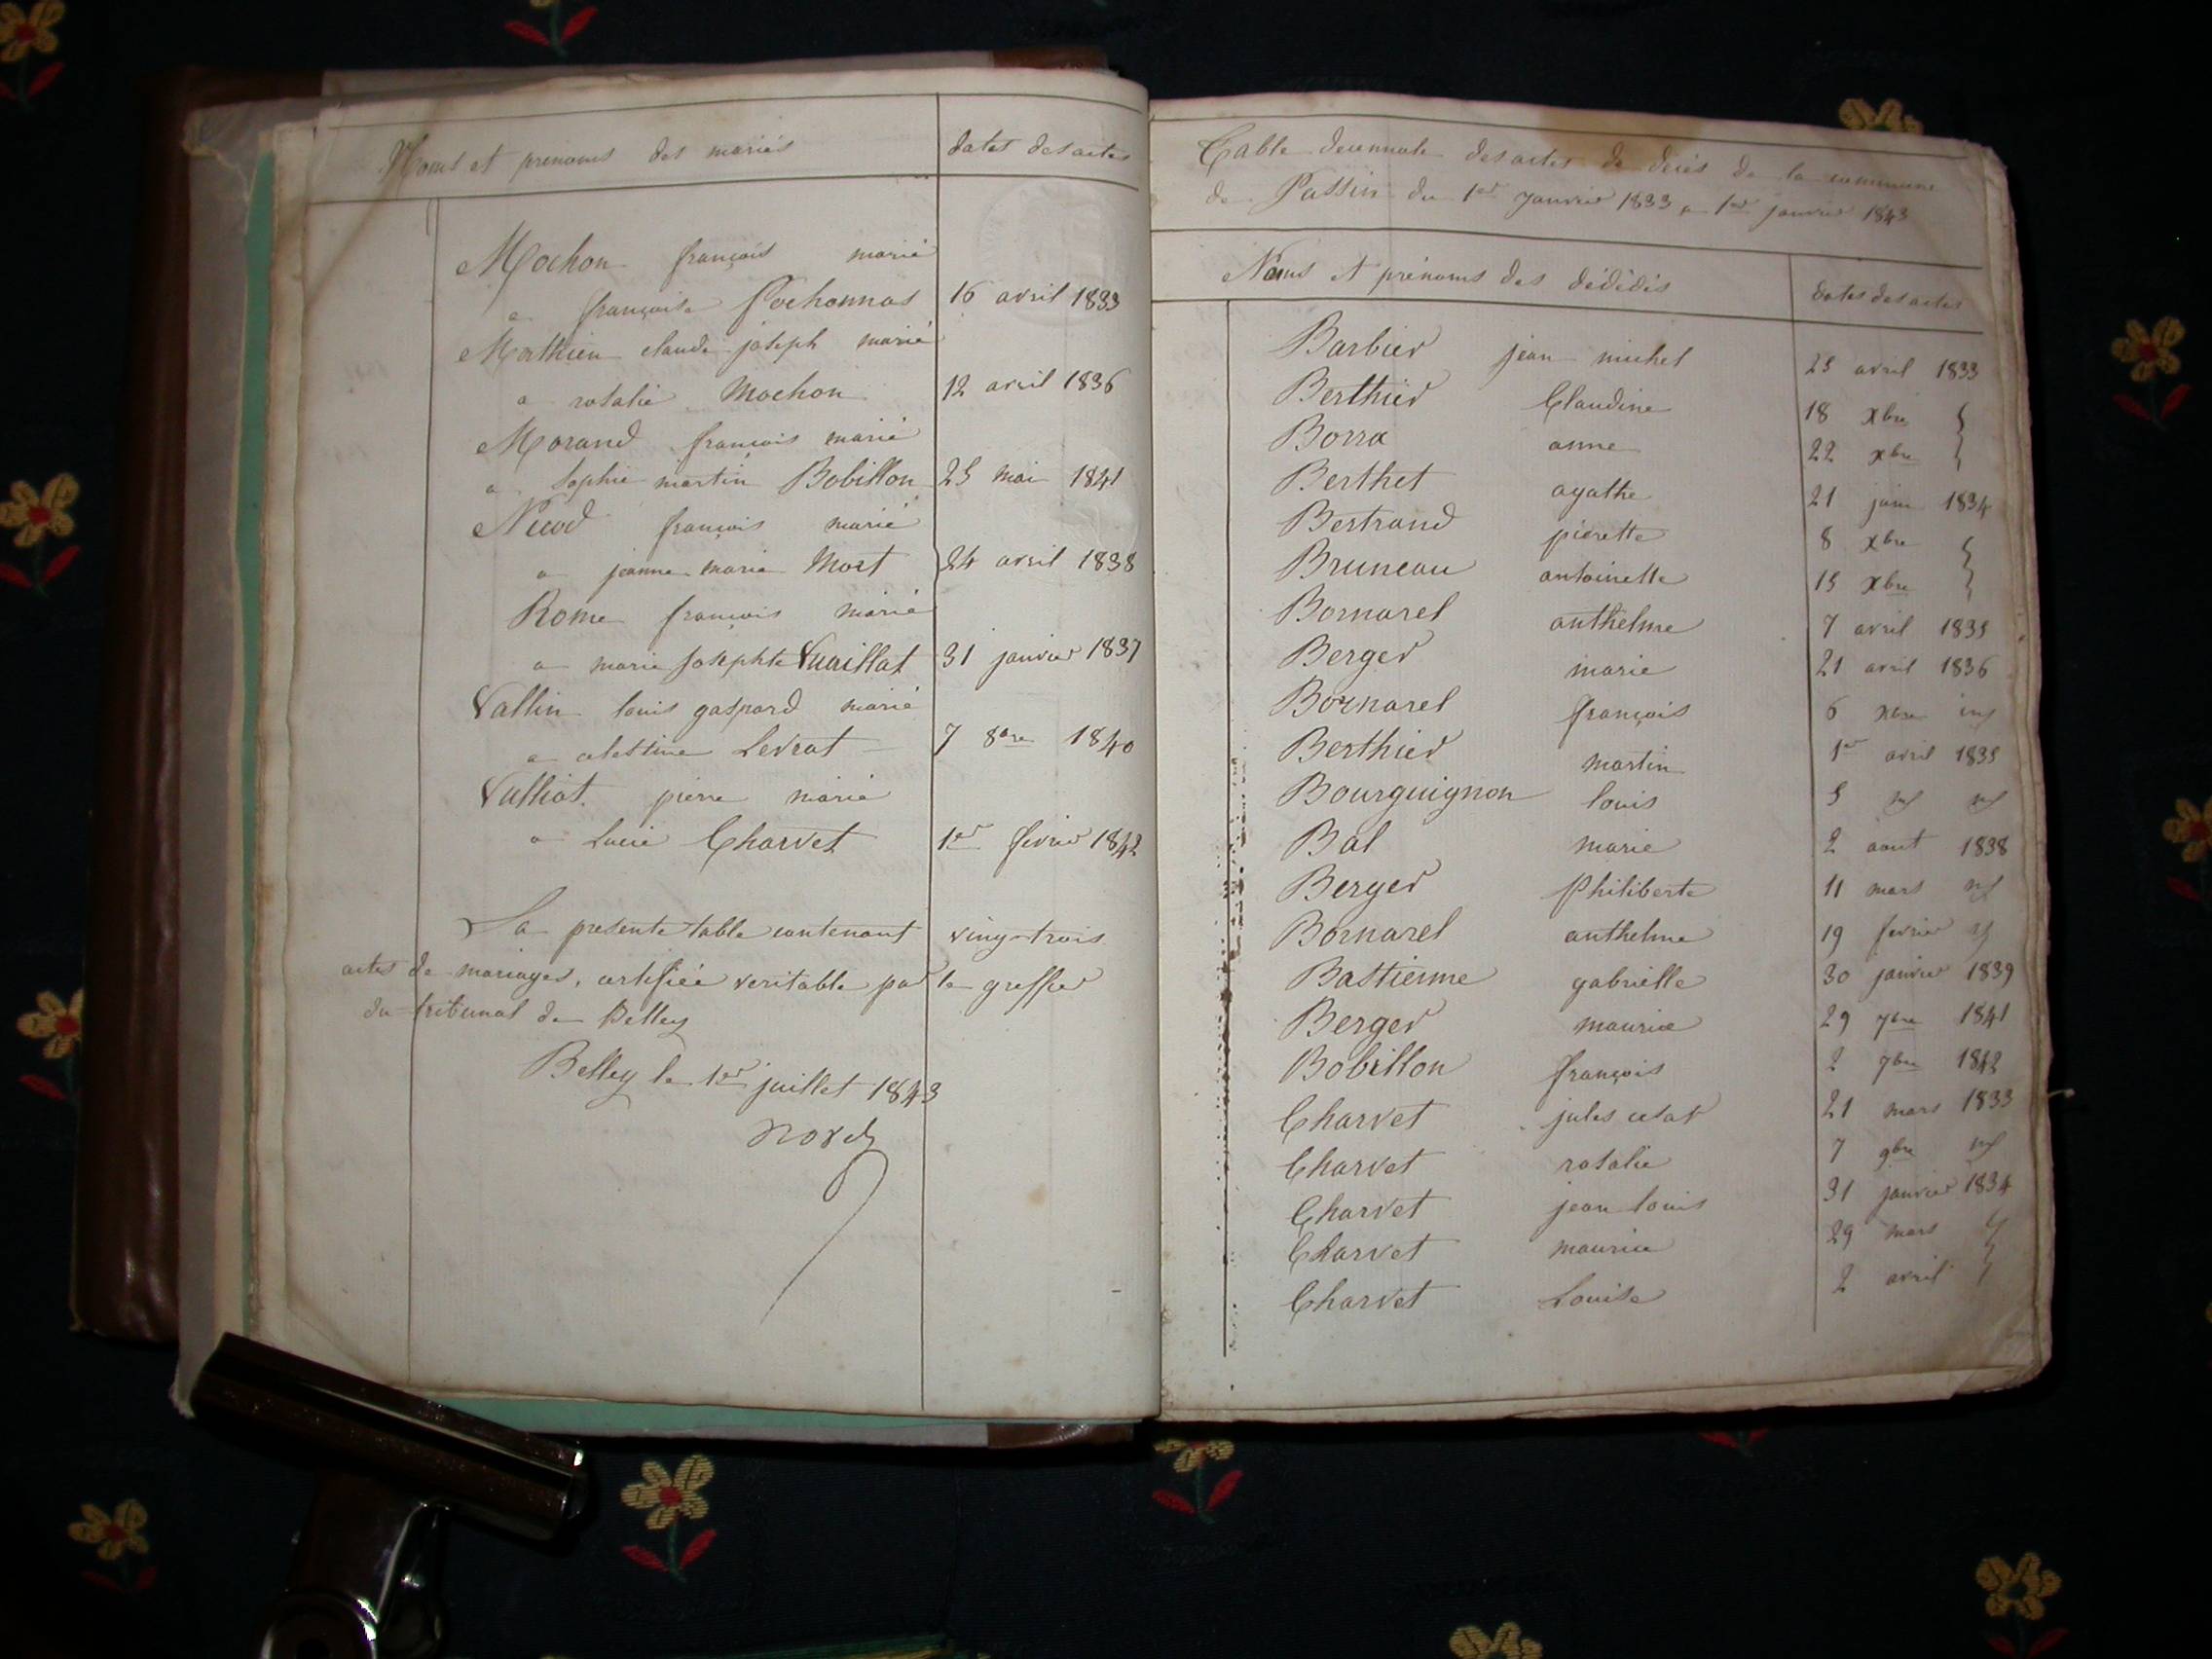 Noms et prenoms des mariés dates des actes
Mochon françois marié
a françoise Pochonnas 16 avril 1833
Mathieu claude joseph marié
a rosalie Mochon 12 avril 1836
Morand françois marié
a Sophie martin Bobillon 25 mai 1841
Nicod françois marié
a jeanne marie Mort 24 avril 1838
Rome françois marié
a marie josephte Vuaillat 31 janvier 1837
Vallin louis gaspard marié
a celestine Levrat 7 8bre 1840
Vulliot pierre marié
a Lucie Charvet 1er fevrier 1842
La presente table contenant ving-trois
actes de mariages, certifiée veritable par le greffier
du tribunal de Belley
Belley le 1er juillet 1843
Table decennale des actes de décès de la commune
de Passin du 1er Janvier 1833 a 1er janvier 1843
Noms et prénoms des dédédés dates des actes
Barbier jean michel 25 avril 1833
Berthier Claudine 18 xbre
Borra anne 22 xbre
Berthet agathe 21 juin 1834
Bertrand pierette 8 xbre
Bruneau antoinette 15 xbre
Bornarel anthelme 7 avril 1835
Berger marie 21 avril 1836
Bornarel françois 6 xbre
Berthier martin 1er avril 1835
Bourguignon louis 5
Bal marie 2 aout 1838
Berger Philiberte 11 mars
Bornarel anthelme 19 fevrier
Bastienne gabrielle 30 janvier 1839
Berger maurice 29 7bre 1841
Bobillon françois 2 7bre 1842
Charvet jules cesar 21 mars 1833
Charvet rosalie 7 9bre
Charvet jean louis 31 janvier 1834
Charvet maurice 29 mars
Charvet Louise 2 avril